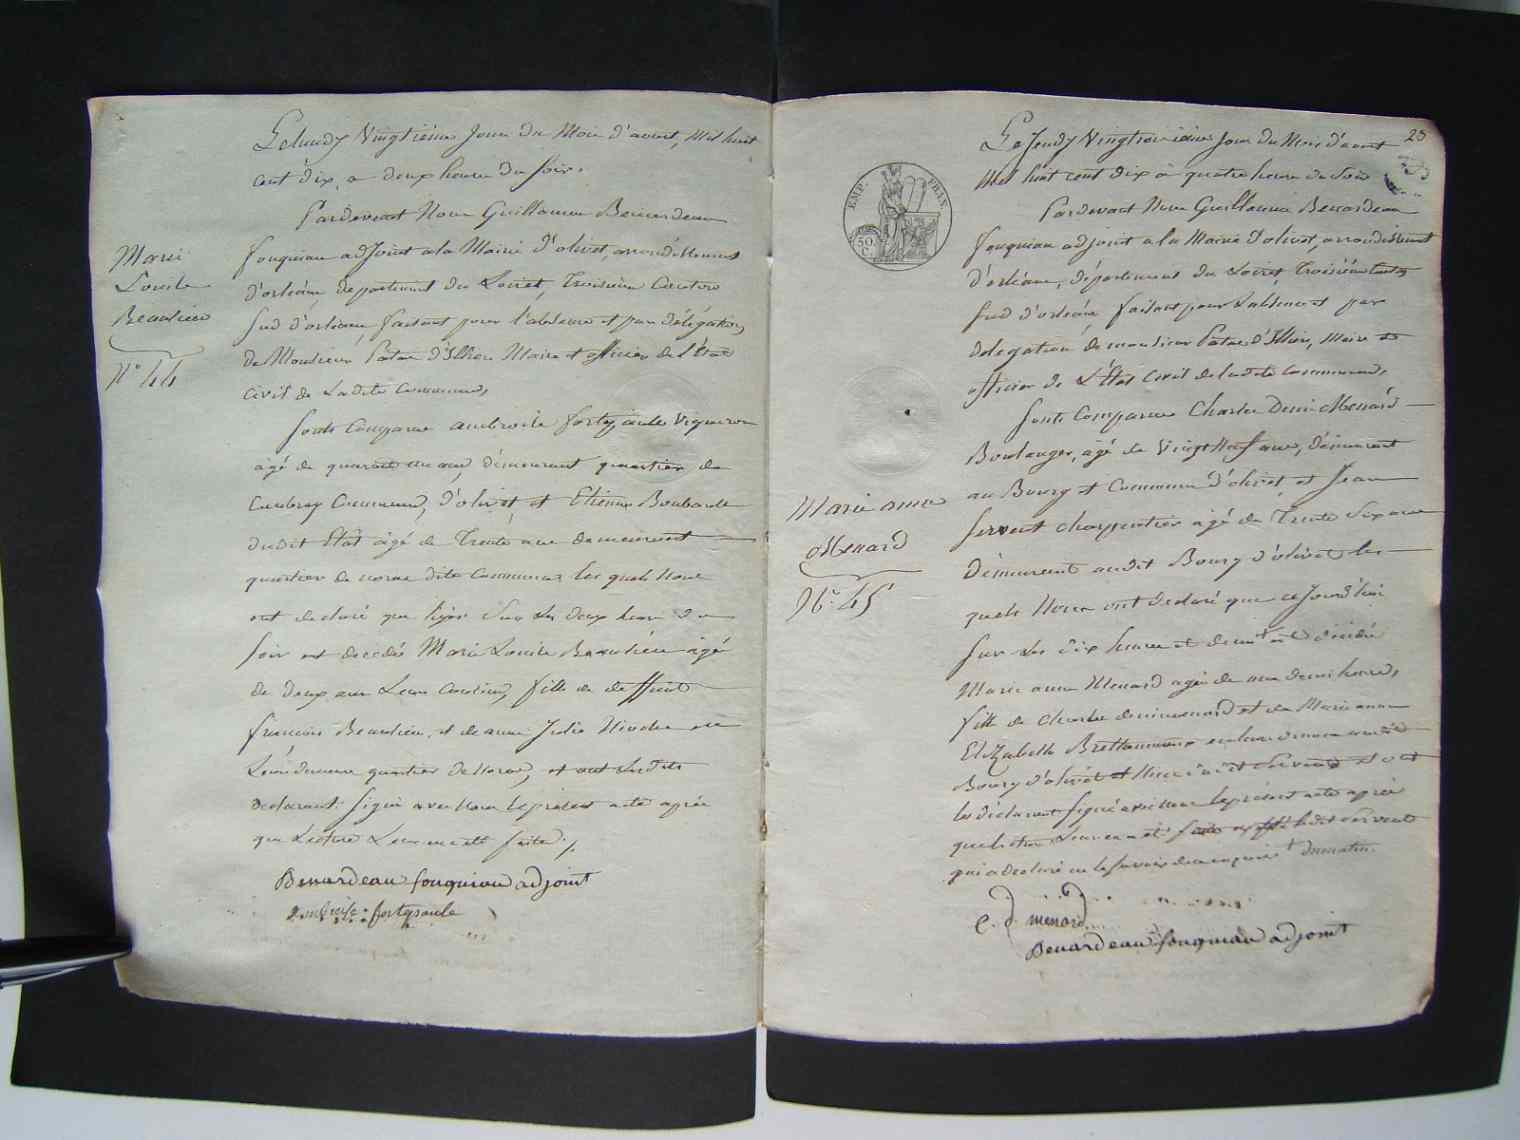 Le lundy Vingtième Jour du Mois d'aoust, Mil huit
cent dix, a deux heure du soir.
Pardevant Nous Guillaume Benardeau
fouqueau adjoint a la Mairie d'olivet, arrondissement
d'orléans departement du Loiret, troisieme Canton
sud d'orléans faisant pour l'absence et par délégation
de Monsieur Patas d'Illiers Maire et officier de l'État
civil de Ladite Commune,
Marie
Louise
Beaulieu
N° 44
sont Comparus ambroise fortepaule Vigneron
agé de quarante un ans, demeurant quartier de
Commune, d'olivet et Etienne
dudit Etat âgé de Trente ans demeurant
quartier de dite Commune les quels Nous
ont declaré que hier Sur les deux heure du
soir est decedée Marie Louise Beaulieu agé
de deux ans Leur Cousine, fille de deffunt
françois Beaulieu, et de anne Julie
quartier de et ont Lesdits
declarant Signé avec Nous le présent acte après
que Lecture Leur en a été faite ;.
Benardeau fouqueau adjoint
ambroise fortepaule
25
Le Jeudy Vingt troisième Jour du Mois d'aoust
Mil huit cent dix à quatre heure du Soir
EMP. FRAN.
50 C.
Pardevant Nous Guillaume Benardeau
fouqueau adjoint a la Mairie d'olivet, arrondissement
d'orléans, département du Loiret, Troisième Canton
sud d'orléans faisant pour L'absence et par
delegation de monsieur Patas d'Illiers, Maire et
officier de L'État Civil de ladite Commune,
sont Comparus Charles Denis Menard
Boulanger, âgé de Vingt Neuf ans, demeurant
au Bourg et Commune d'olivet, et Jean
servent charpentier âgé de Trente Six ans
Marie anne
Menard
N° 45
Demeurant audit Bourg d'olivet les
quels Nous ont declaré que ce Jourd'hui
sur les dix heure et demi est décédée
Marie anne Menard agée de une demi heure,
fille de Charles denis menard et de Marie anne
Elizabeth demeurant
Bourg d'olivet et
les déclarant signé avec nous le présent acte après
que lecture Leur en a été faite ledit servent
qui a declaré ne le savoir de ce requis du matin.
C. d. menard
Benardeau fouqueau adjoint